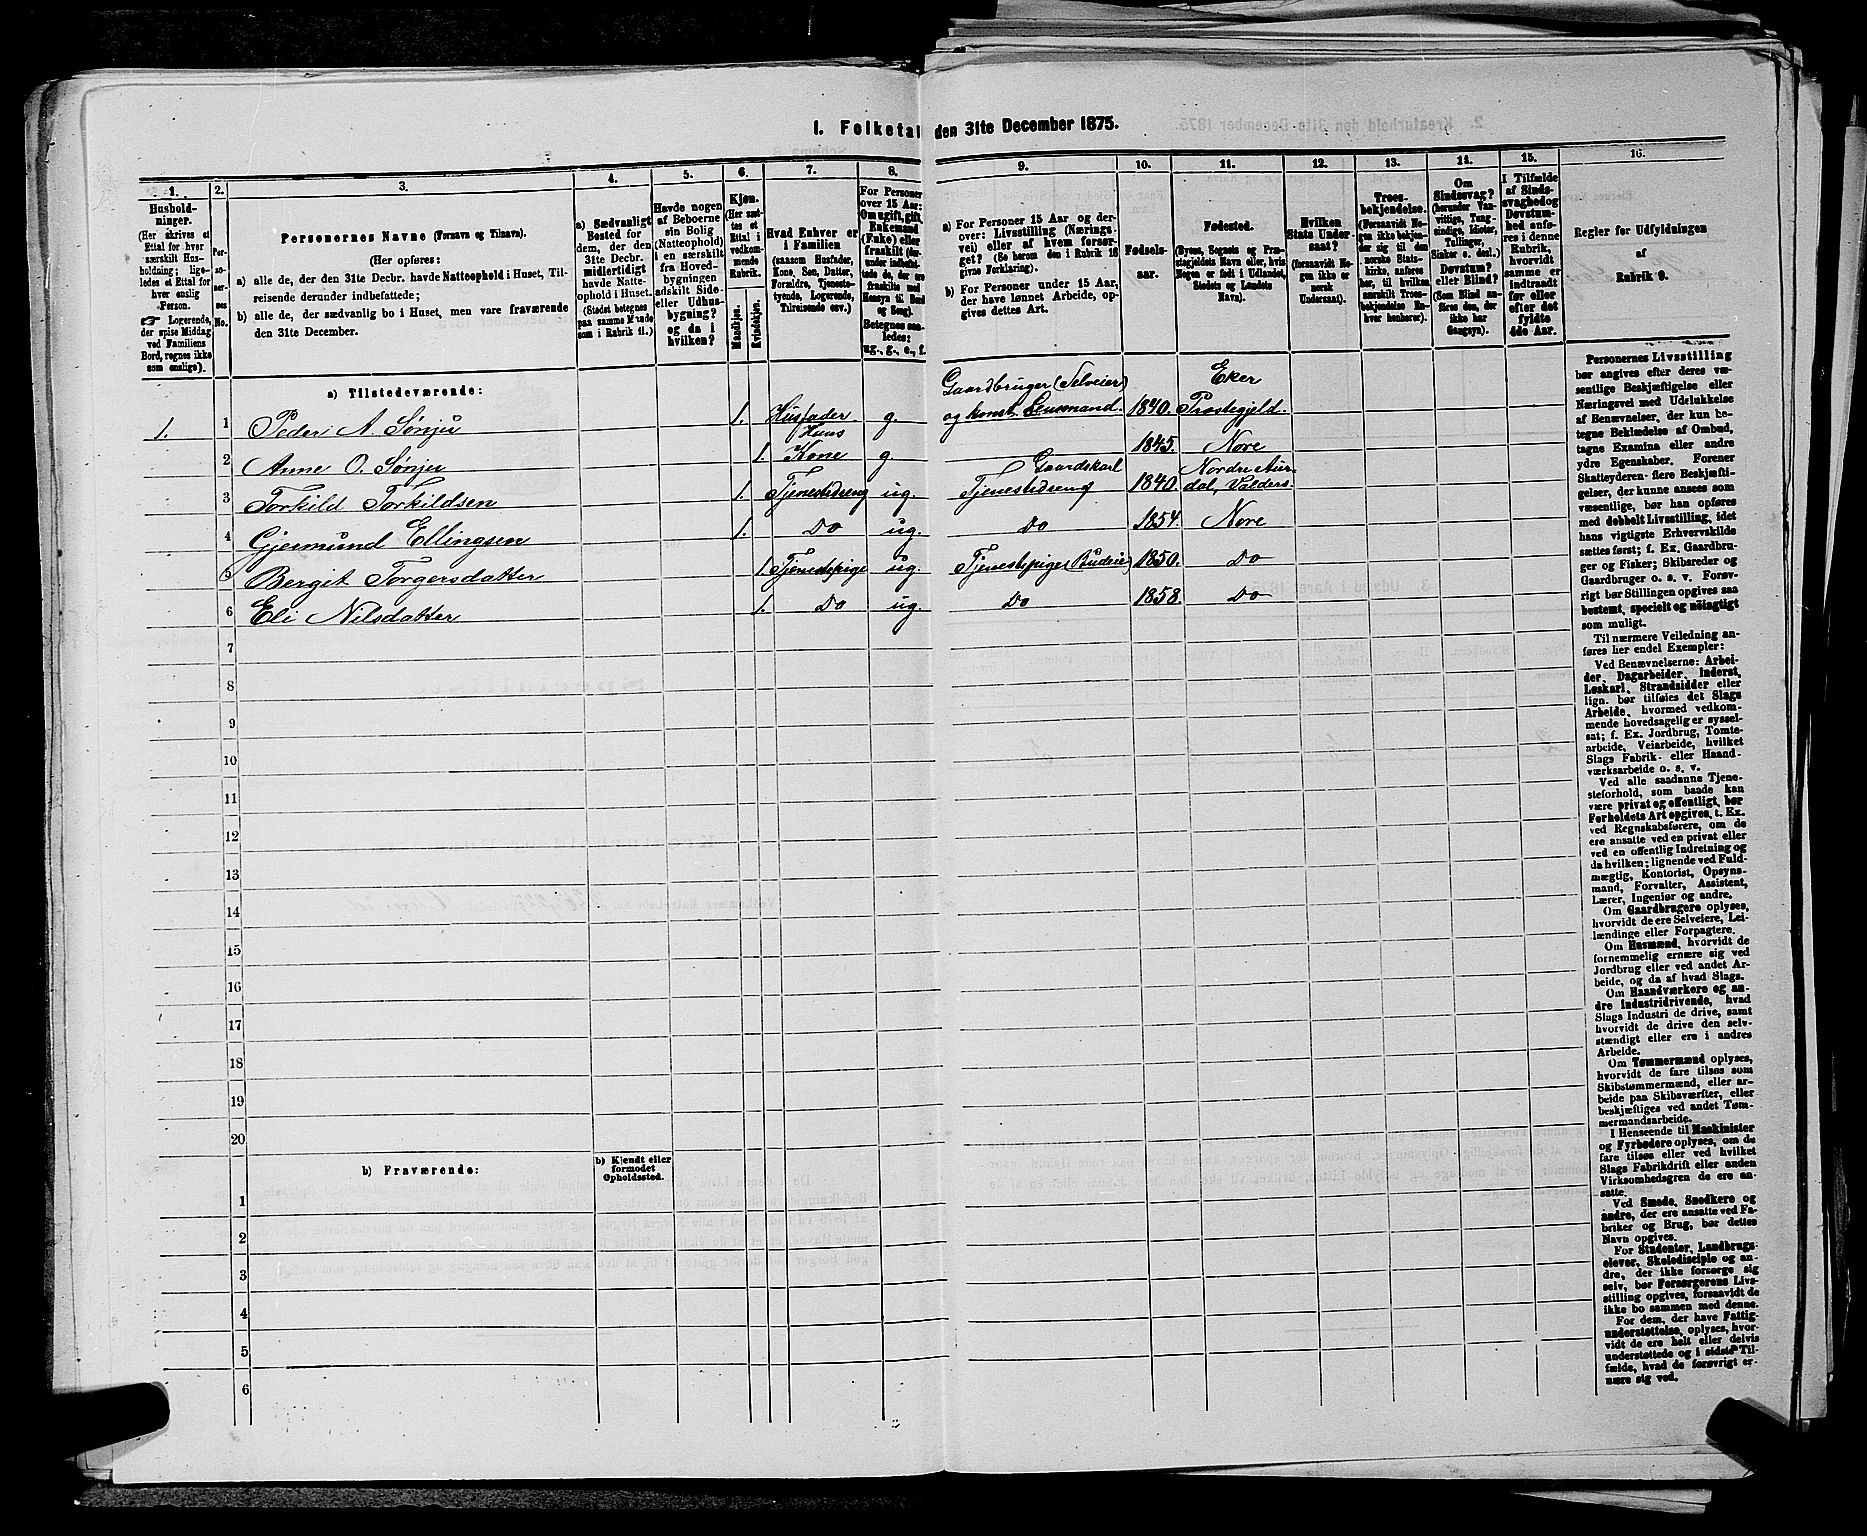 I. Folketal den 31te December 1875.
1. 2. 3. 4. 5. 6. 7. 8. 9. 10. 11. 12. 13. 14. 15. 16.
Hushold-
ninger.
(Her skrives et
Ettal for hver
særskilt Hus-
holdning; lige-
ledes et Ettal for
hver enslig
Person.
☞ Logerende,
der spise Middag
ved Familiens
Bord, regnes ikke
som enslige).
Per-
so-
ner-
nes
No.
Personernes Navne (Fornavn og Tilnavn).
(Her opføres:
a) alle de, der den 31te Decbr. havde Natteophold i Huset, Til-
reisende derunder indbefattede;
b) alle de, der sædvanlig bo i Huset, men vare fraværende
den 31te December.
a) Sædvanligt
Bosted for
dem, der den
31te Decbr.
midlertidigt
havde Natte-
ophold i Huset.
(Stedet betegnes
paa samme Maade
som i Rubrik 11.)
Havde nogen
af Beboerne
sin Bolig
(Natteophold)
i en særskilt
fra Hoved-
bygningen
adskilt Side-
eller Udhus-
bygning?
og da i
hvilken?
Kjøn.
(Her sæt-
tes et
Ettal i
vedkom-
mende
Rubrik.
Mandkjøn.
Kvindekjøn.
Hvad Enhver er
i Familien
(saasom Husfader,
Kone, Søn, Datter,
Forældre, Tjeneste-
tyende, Logerende,
Tilreisende osv.)
For Personer
over 15 Aar:
Om ugift, gift,
Enkemand
(Enke) eller
fraskilt (der-
under indbefat-
tede de, der ere
fraskilte med
Hensyn til Bord
og Seng).
Betegnes saa-
ledes:
ug., g., e., f.
a) For Personer 15 Aar og der-
over: Livsstilling (Nærings-
vei) eller af hvem forsør-
get? (Se herom den i Rubrik 16
givne Forklaring).
b) For Personer under 15 Aar,
der have lønnet Arbeide, op-
gives dettes Art.
Fødsels-
aar.
Fødested.
(Byens, Sognets og Præ-
stegjeldets Navn eller, hvis
Nogen er født i Udlandet,
Stedets og Landets
Navn).
Hvilken
Stats Under-
saat?
(forsaavidt No-
gen ikke er
norsk
Undersaat).
Troes-
bekjendelse.
(Forsaavidt No-
gen ikke bekjen-
der sig til den
norske Stats-
kirke, anføres
her, til hvilken
særskilt Troes-
bekjendelse En-
hver henhører).
Om
Sindssvag?
(herunder Van-
vittige, Tung-
sindige, Idioter,
Tullinger,
Sinker o. desl.)
Døvstum?
eller Blind?
(Som Blind an-
føres den, der
ikke har
Gangsyn).
I Tilfælde
af Sinds-
svaghed og
Døvstum-
hed anfø-
res i denne
Rubrik,
hvorvidt
samme er
indtraadt
før eller
efter det
fyldte
4de Aar.
Regler for Udfyldningen
af
Rubrik 9.
a) Tilstedeværende:
Gaardbruger (Selveier) Eker
1. 1 Peder A. Sønju 1. Husfader g. og konst. Lensmand. 1840. Prestegjeld.
Huus
2 Anne O. Sønju 1. Kone g 1845. Nore
Gaardskarl Nordre Aur-
3 Torkild Torkildsen 1. Tjenestedreng ug. Tjenestedreng 1840. dal, Valders.
4 Gjermund Ellingsen 1. Do ug. Do 1854. Nore
5 Bergit Torgersdatter 1. Tjenestepige ug. Tjenestepige (Budeie) 1850. Do
6 Eli Nilsdatter 1. Do ug. Do 1858. Do
7
8
9
10
11
12
13
14
15
16
17
18
19
20
b) Fraværende:
b) Kjendt eller
formodet
Opholdssted.
1
2
3
4
5
6
Personernes Livsstilling
bør angives efter deres væ-
sentlige Beskjæftigelse eller
Næringsvei med Udelukkelse
af Benævnelser, der kun be-
tegne Beklædelse af Ombud,
tagne Examina eller andre
ydre Egenskaber. Forener
Skatteyderen flere Beskjæfti-
gelser, der kunne ansees som
væsentlige, bør han opføres
med dobbelt Livsstilling, idet
hans vigtigste Erhvervskilde
sættes først; f. Ex. Gaardbru-
ger og Fisker; Skibsreder og
Gaardbruger o. s. v. Forøv-
rigt bør Stillingen opgives saa
bestemt, specielt og nöiagtigt
som muligt.
Til nærmere Veiledning an-
føres her endel Exempler:
Ved Benævnelserne: Arbei-
der, Dagarbeider, Inderst,
Løskarl, Strandsidder eller
lign. bør tilføies det Slags
Arbeide, hvormed vedkom-
mende hovedsagelig er syssel-
sat; f. Ex. Jordbrug, Tomte-
arbeide, Veiarbeide, hvilket
Slags Fabrik- eller Haand-
værksarbeide o. s. v.
Ved alle saadanne Tjene-
steforhold, som baade kan
være privat og offentligt, bør
Forholdets Art opgives, f. Ex.
ved Regnskabsførere, om de
ere ansatte ved en privat eller
ved en offentlig Indretning og
da hvilken; lignende ved Fuld-
mægtig, Kontorist, Opsyns-
mand, Forvalter, Assistent,
Lærer, Ingeniør og andre.
Om Gaardbrugere oplyses,
hvorvidt de ere Selveiere, Lei-
lændinge eller Forpagtere.
Om Husmænd, hvorvidt de
fornemmelig ernære sig ved
Jordbrug eller ved andet Ar-
beide, og da af hvad Slags.
Om Haandværkere og an-
dre Industridrivende, hvad
Slags Industri de drive, samt
hvorvidt de drive den selv-
stændigt eller ere i andres
Arbeide.
Om Tømmermænd oplyses,
hvorvidt de fare tilsøs som
Skibstømmermænd, eller ar-
beide paa Skibsværfter, eller
beskjæftiges ved andet Tøm-
mermandsarbeide.
I Henseende til Maskinister
og Fyrbødere oplyses, om de
fare tilsøs eller ved hvilket
Slags Fabrikdrift eller anden
Virksomhedsgren de ere an-
satte.
Ved Smede, Snedkere og
andre, der ere ansatte ved Fa-
briker og Brug, bør dettes
Navn opgives.
For Studenter, Landbrugs-
elever, Skoledisciple og an-
dre, der ikke forsørge sig
selv, bør Forsørgerens Livs-
stilling opgives, forsaavidt de
ikke bo sammen med denne.
For dem, der have Fattig-
understøttelse, oplyses, hvor-
vidt de ere helt eller delvis
understøttede og i sidste Til-
fælde, hvad de forøvrigt er-
nære sig ved.